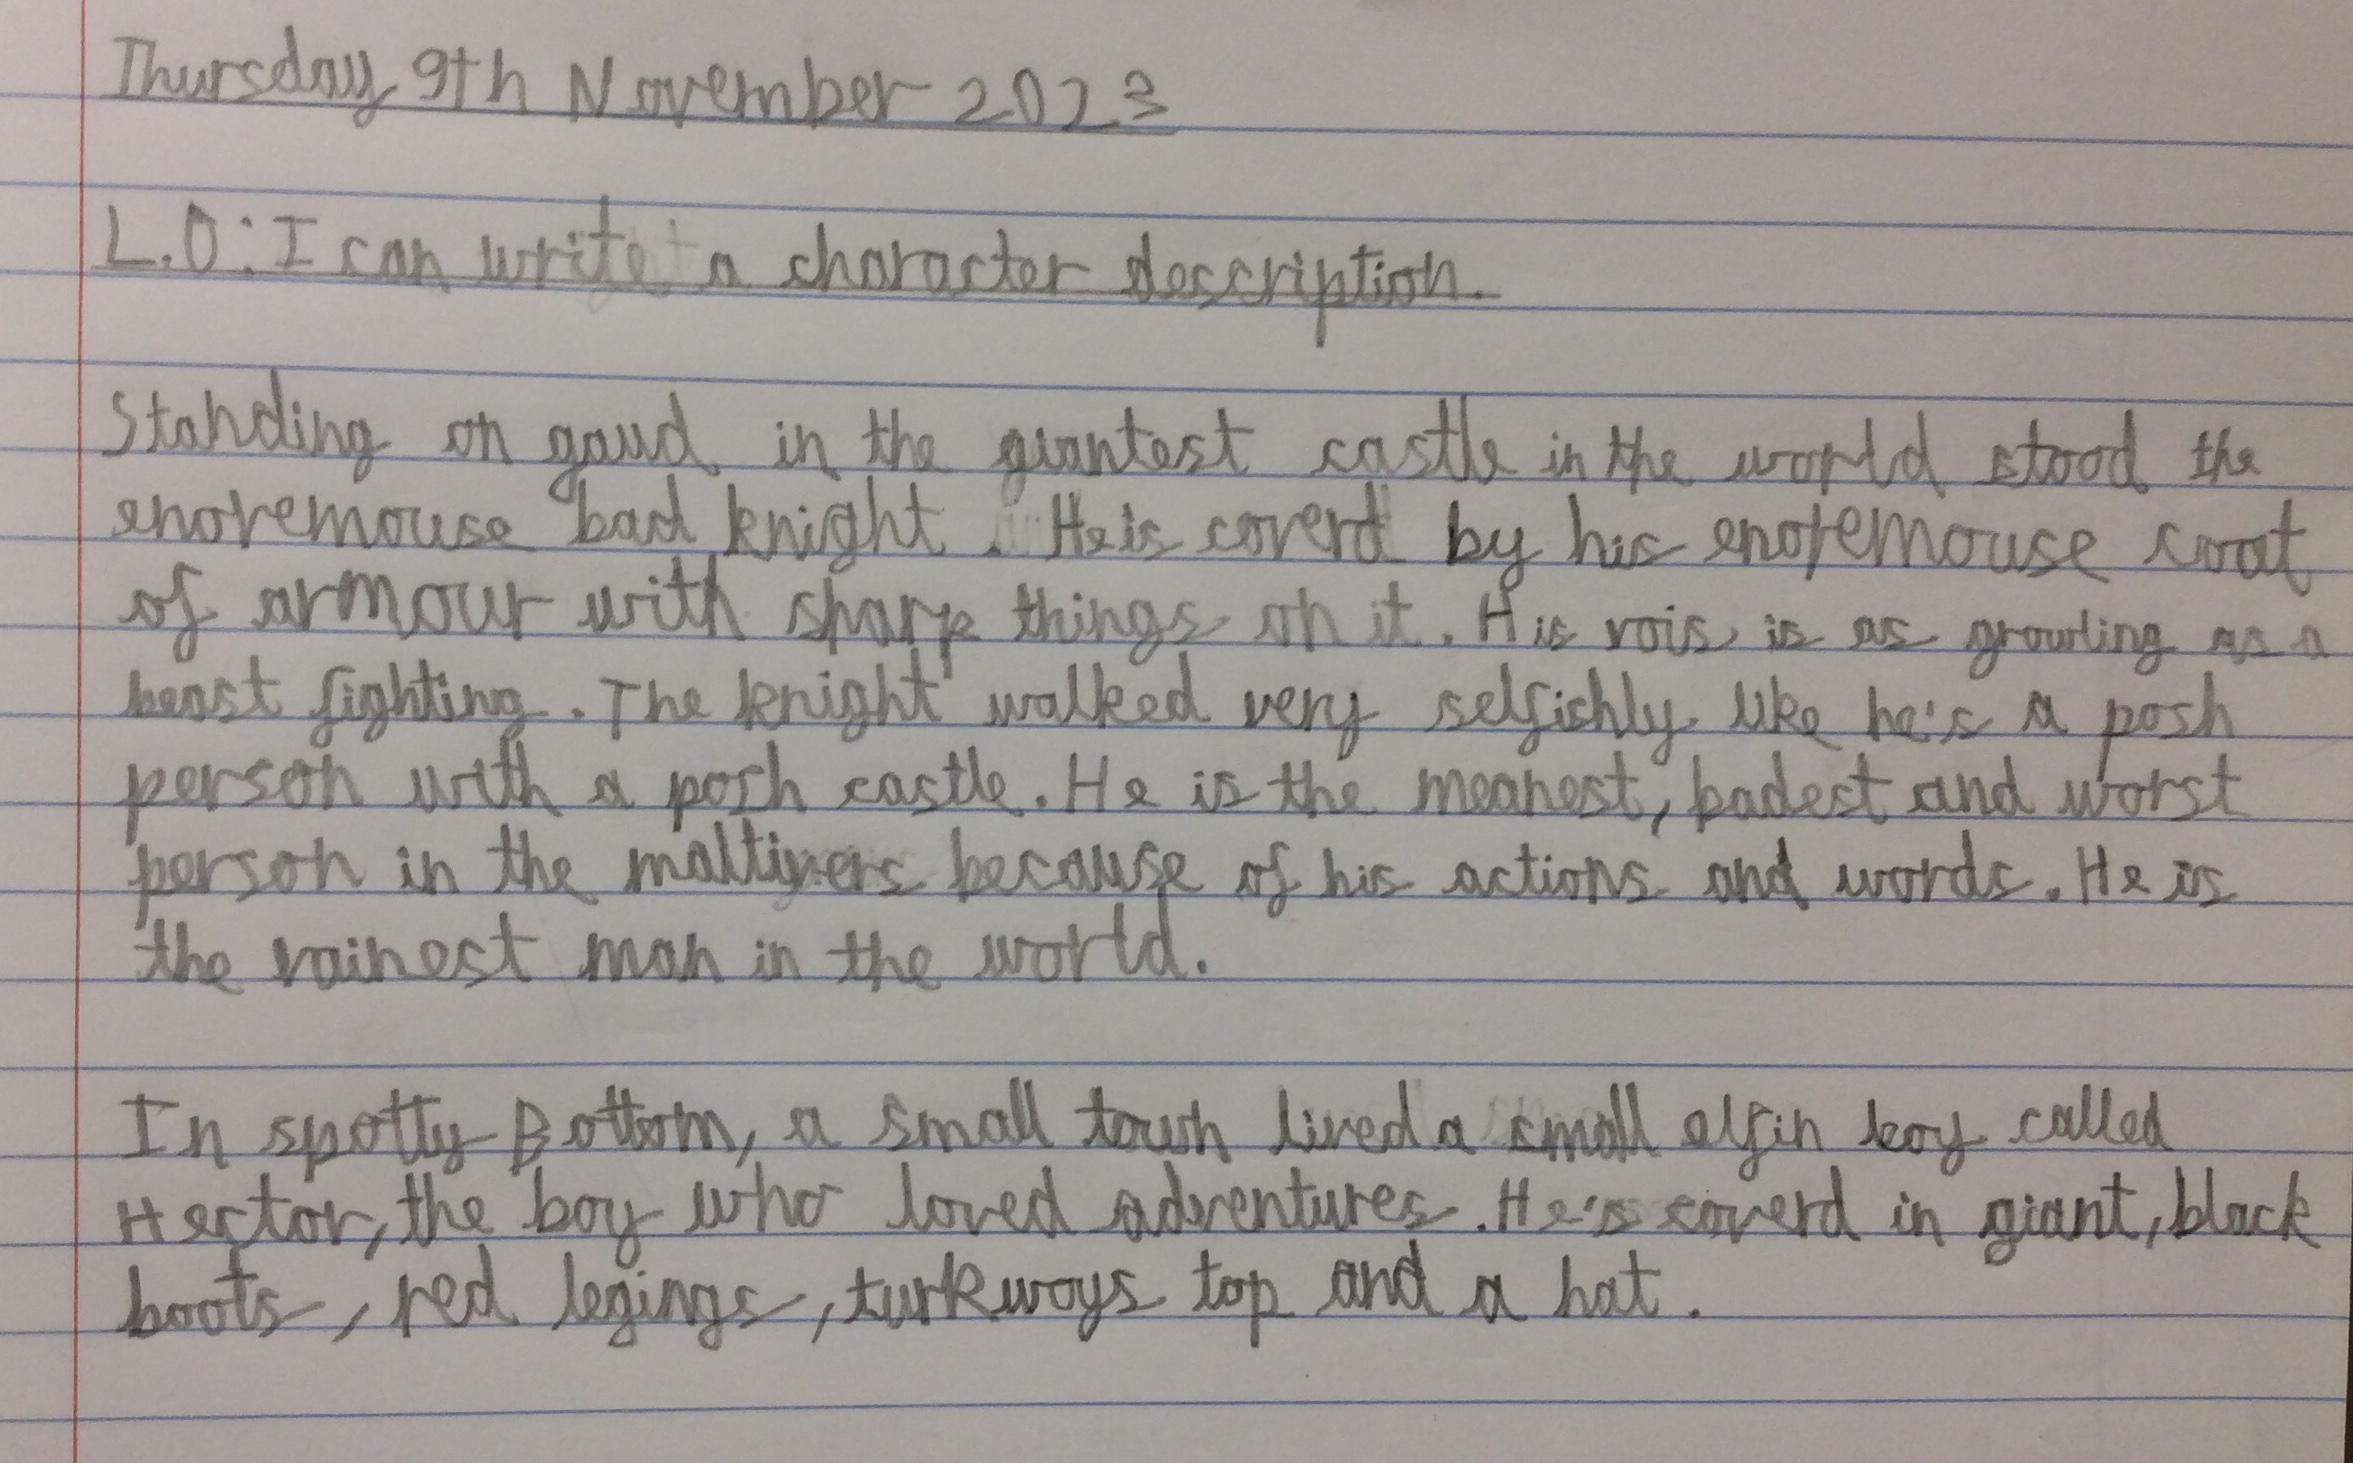 Thursday 9th November 2023
L.O: I can write a character description.
Standing on gaud in the giantest castle in the world stood the
enoremouse bad knight. He is coverd by his enoremouse coat
of armour with sharp things on it. His vois is as growling as a
beast fighting. The knight walked very selfishly like he's a posh
person with a posh castle. He is the meanest, badest and worst
person in the maltivers because of his actions and words. He is
the vainest man in the world.
In spotty Bottom, a small town lived a small elfin boy called
Hector, the boy who loved adventures. He's coverd in giant, black
boots, red legings, turkwoys top and a hat.